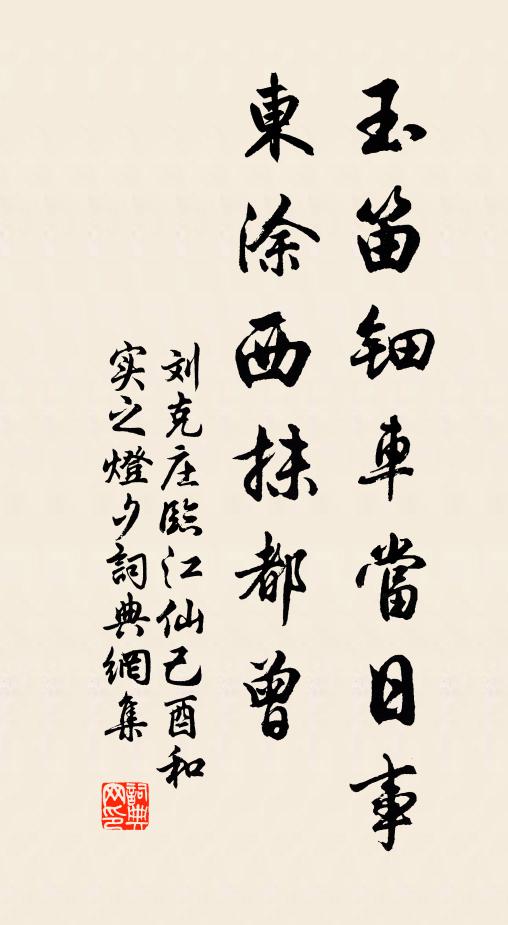 玉笛钿車當日事
東涂西抹都曾
刘克庄臨江仙己酉和
实之燈夕詞典網集
詞典网印